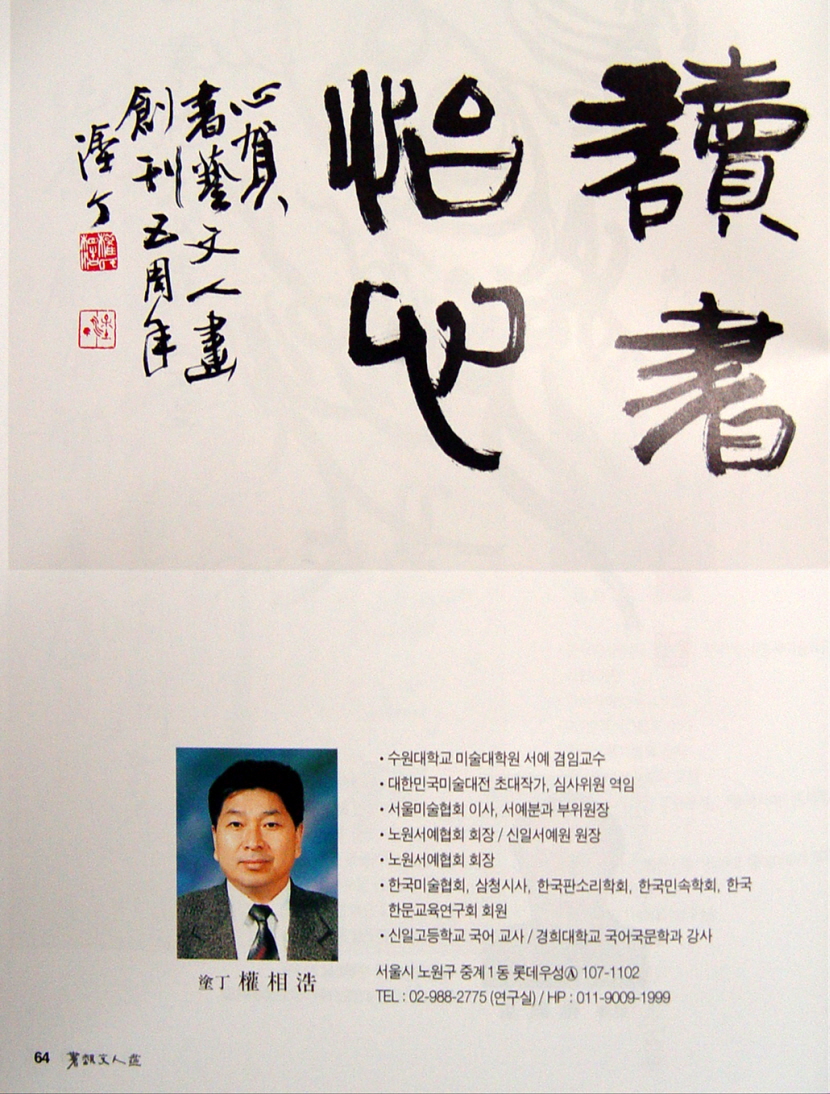 讀書
怡心
心賀
書藝文人畫
創刊五周年
塗丁
• 수원대학교 미술대학원 서예 겸임교수
• 대한민국미술대전 초대작가, 심사위원 역임
• 서울미술협회 이사, 서예분과 부위원장
• 노원서예협회 회장 / 신일서예원 원장
• 노원서예협회 회장
• 한국미술협회, 삼청시사, 한국판소리학회, 한국민속학회, 한국
한문교육연구회 회원
• 신일고등학교 국어 교사 / 경희대학교 국어국문학과 강사
서울시 노원구 중계1동 롯데우성Ⓐ 107-1102
TEL : 02-988-2775 (연구실) / HP : 011-9009-1999
塗丁 權相浩
64 書藝文人畵